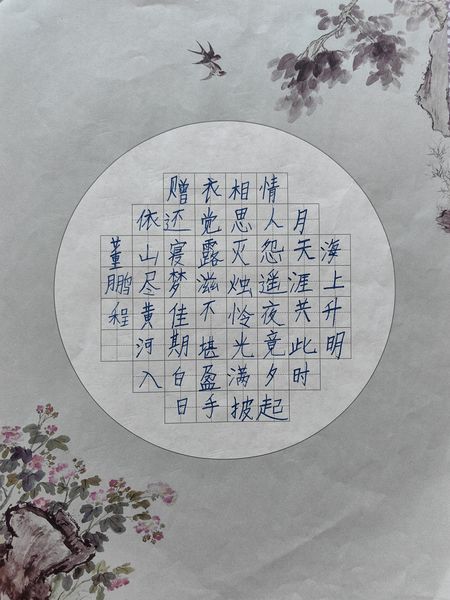 海上升明
月天涯共此时
情人怨遥夜竟夕起
相思灭烛怜光满披
衣觉露滋不堪盈手
赠还寝梦佳期白日
依山尽黄河入
董鹏程